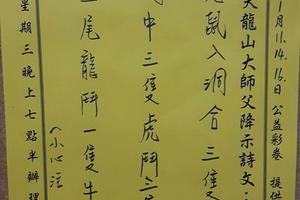 1月11.14.16日 公益彩卷 提供
天龍山大師父降示詩文：
鼠入洞合三隻
中三隻虎鬥三
尾龍鬥一隻牛
〈小心注
星期三晚上七點半辦理